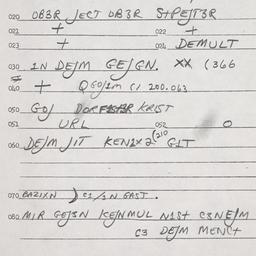 020 OB3R JECT OB3R S+PEJT3R
021 + 022 +
023 + 024 DEMULT
030 IN DEJM GEJGN. XX (366
040 + QGOJIM C1 200.063
050 GOJ KRIST
051 URL 052 0
060 DEJM JIT KEN1X2 (210 G1T
070 BAZIXN ) C1/3N GAST.
080 MIR GEJ3N KEJNMUL N1S+ C3NEJM
C3 DEJM MENC+